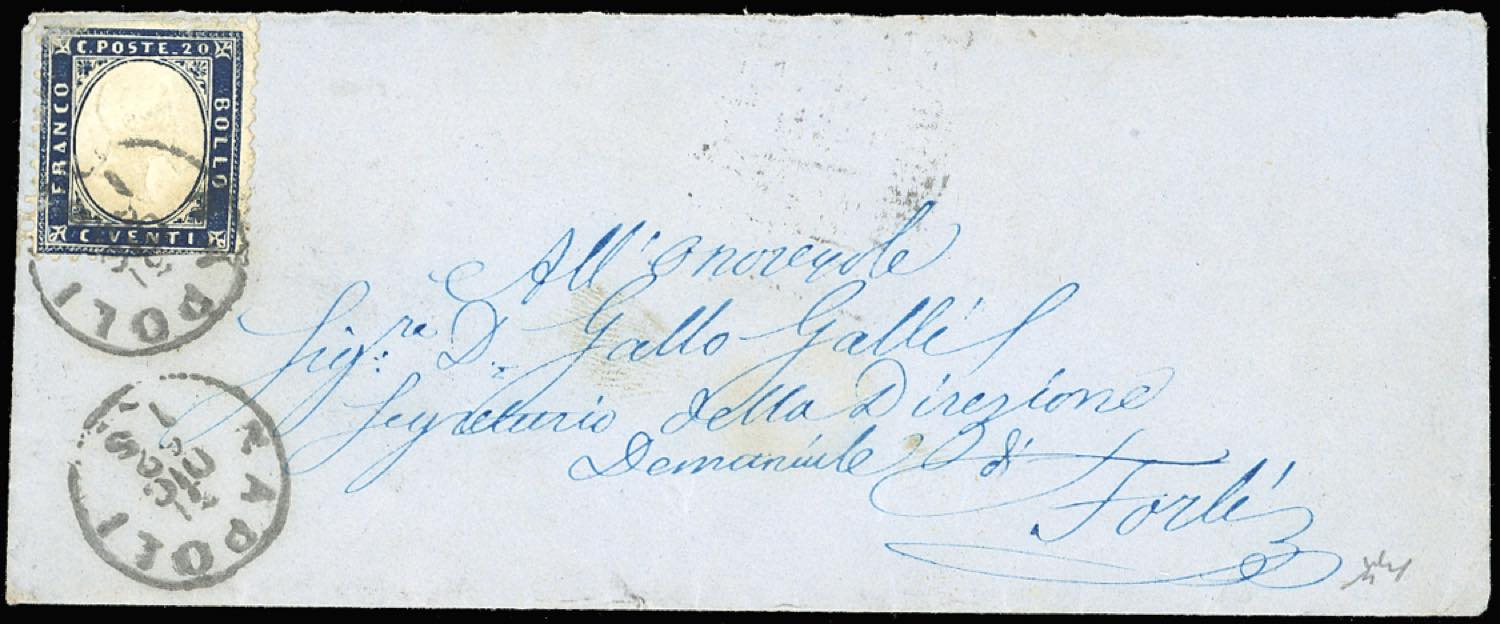 C. POSTE. 20
FRANCO
BOLLO
C. VENTI
NAPOLI
All' Onorevole
Sig.re D. Gallo Galli
Segretario della Direzione
Demaniale di
Forlì